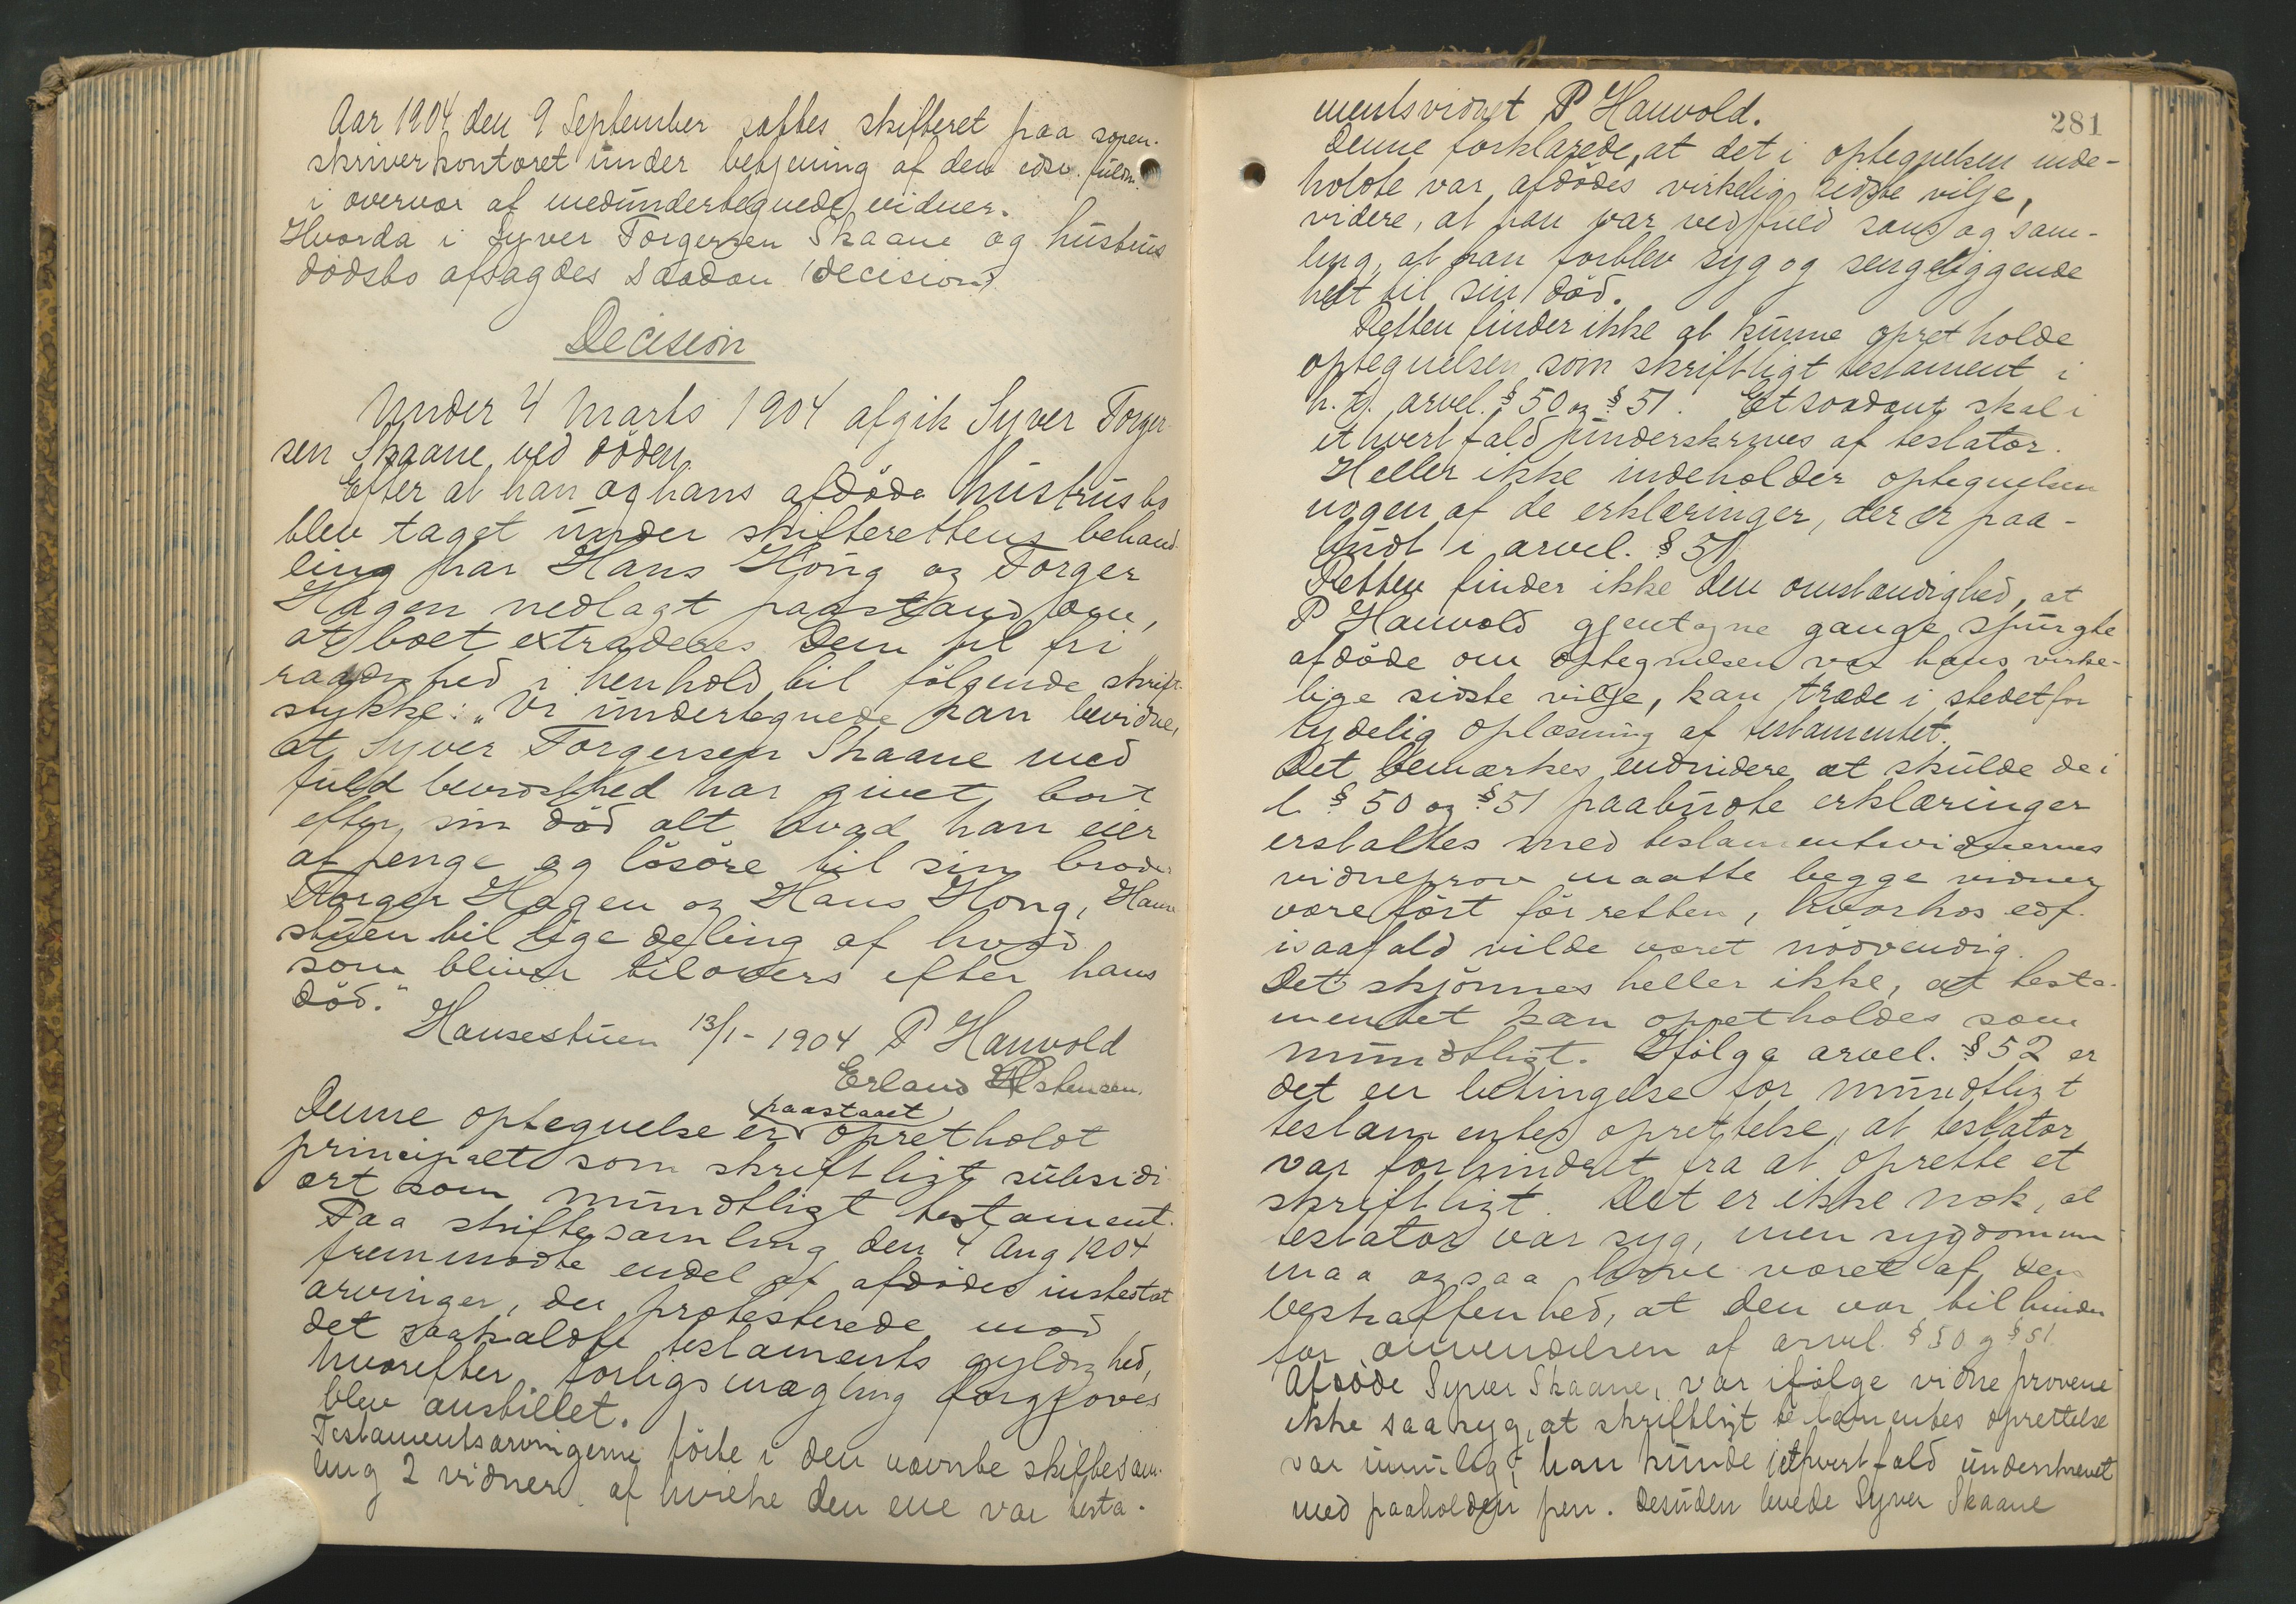 Aar 1904 den 9 September sattes skifteret paa soren-
skriverkontoret under betjening af den edsv. fuldm.
i overvær af medundertegnede vidner.
Hvorda i Syver Torgersen Skaane og hustrus
dödsbo afsagdes saadan decision:
Decision
Under 4 Marts 1904 afgik Syver Torger-
sen Skaane ved döden.
Efter at han og hans afdöde hustrus bo
blev taget under skifterettens behand-
ling har Hans Höng og Torger
Hagen nedlagt paastand om,
at boet extraderes dem til fri
raadighed i henhold til fölgende skrift-
stykke: „Vi undertegnede kan bevidne,
at Syver Torgersen Skaane med
fuld bevidsthed har givet bort
efter sin död alt hvad han eier
af penge og lösöre til sin broder
Torger Hagen og Hans Hong, Hanse-
stuen til lige deling af hvad
som bliver tilovers efter hans
död."
Hansestuen 13/1-1904 P Hanvold
Erland Østensen.
Denne optegnelse er paastaaet opretholdt
principalt som skriftligt subsidi-
ært som mundtligt testament.
Paa skiftesamling den 4 Aug 1904
fremmödte endel af afdödes intestat
arvinger, der protesterede mod
det saakaldte testaments gyldighed,
hvorefter forligsmægling forgjæves
blev anstillet.
Testamentsarvingerne förte i den nævnte skiftesam-
ling 2 vidner af hvilke den ene var testa-
281
mentsvidnet P Hanvold.
Denne forklarede, at det i optegnelsen inde-
holdte var afdödes virkelig sidste vilje,
videre, at han var ved fuld sans og sam-
ling, at han forblev syg og sengeliggende
helt til sin död.
Retten finder ikke at kunne opretholde
optegnelsen som skriftligt testament i
h. t. arvel. § 50 og § 51. Et saadant skal i
ethvert fald underskrives af testator.
Heller ikke indeholder optegnelsen
nogen af de erklæringer, der er paa-
budt i arvel. § 51.
Retten finder ikke den omstændighed, at
P Hanvold gjentagne gange spurgte
afdöde om optegnelsen var hans virke-
lige sidste vilje, kan træde i stedet for
tydelig oplæsning af testamentet.
Det bemærkes endvidere at skulde de i
l. § 50 og § 51 paabudte erklæringer
erstattes med testamentsvidnernes
vidneprov maatte begge vidner
være fört för retten, hvorhos edf.
isaafald vilde været nödvendig.
Det skjönnes heller ikke, at testa-
mentet kan opretholdes som
mundtligt. Ifölge arvel. § 52 er
det en betingelse for mundtligt
testamentes oprettelse, at testator
var forhindret fra at oprette et
skriftligt. Det er ikke nok, at
testator var syg, men sygdommen
maa ogsaa have været af den
beskaffenhed, at den var til hinder
for anvendelsen af arvel. § 50 og § 51.
Afdöde Syver Skaane, var ifölge vidneprovene
ikke saa syg, at skriftligt testamentes oprettelse
var umulig; han kunde i ethvert fald underskrevet
med paaholden pen. Desuden levede Syver Skaane